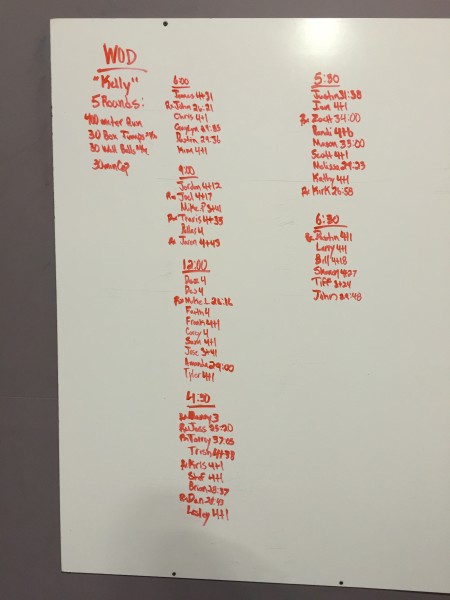 WOD
"Kelly"
5 Rounds:
400 meter Run
30 Box Jumps
30 Wall Balls
6:00
James 4+31
Rx John 26:21
Chris 4+1
29:35
Dustin 29:36
4+1
9:00
Jordan 4+12
Rx Joel 4+17
Mike P 3+41
Rx Travis 4+35
4
Rx Jason 4+45
12:00
4
4
Rx Mike L 26:16
Faith 4
Frank 4+1
Corey 4
Sam 4+1
Jose 3+41
Amanda 29:00
Tyler 4+1
4:30
Rx Danny 3
Rx Jess 25:20
Rx Tammy 37:05
Trish 4+38
Rx Kris 4+1
Stef 4+1
Brian 28:37
Rx Dan 28:43
Lesley 4+1
5:30
Justin 31:38
Ivan 4+1
Rx Zach 34:00
Randi 4+6
Mason 33:00
Scott 4+1
Melissa 29:23
Kathy 4+1
Rx Kirk 26:58
6:30
Rx Dustin 4+1
Larry 4+1
Bill 4+18
Shannon 4+27
Tiff 3+24
John 29:48